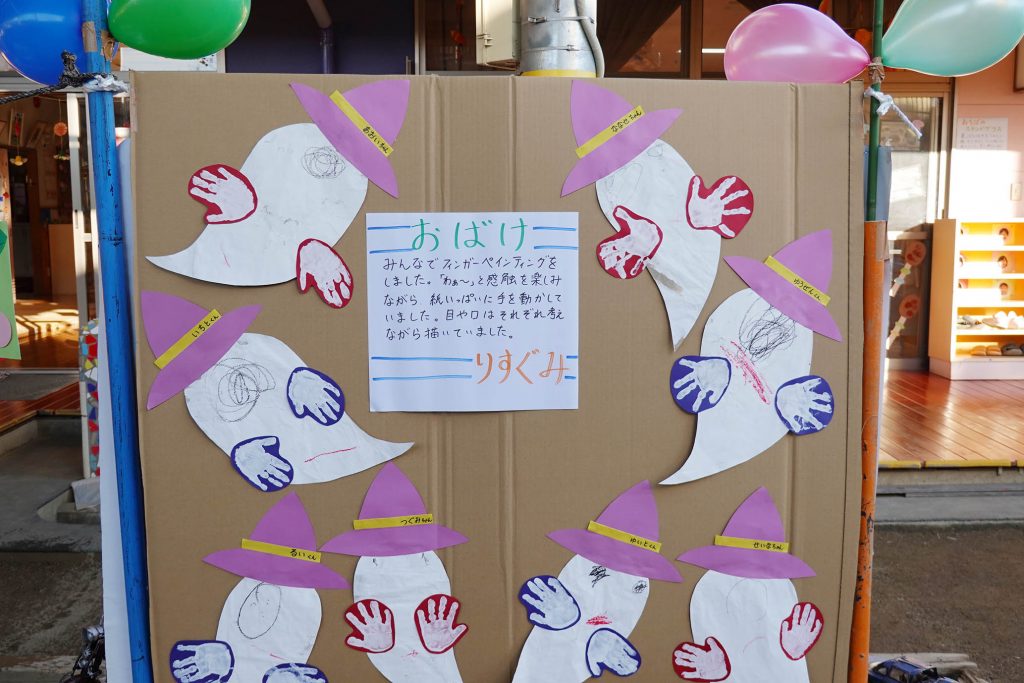 あおいちゃん
ななせちゃん
おばけ
みんなでフィンガーペインティングを
しました。「わぁ～」と感触を楽しみ
ながら、紙いっぱいに手を動かして
いました。目や口はそれぞれ考え
ながら描いていました。
りすぐみ
ゆうぜんくん
いちとくん
るいくん
つぐみちゃん
ゆいとくん
せいなちゃん